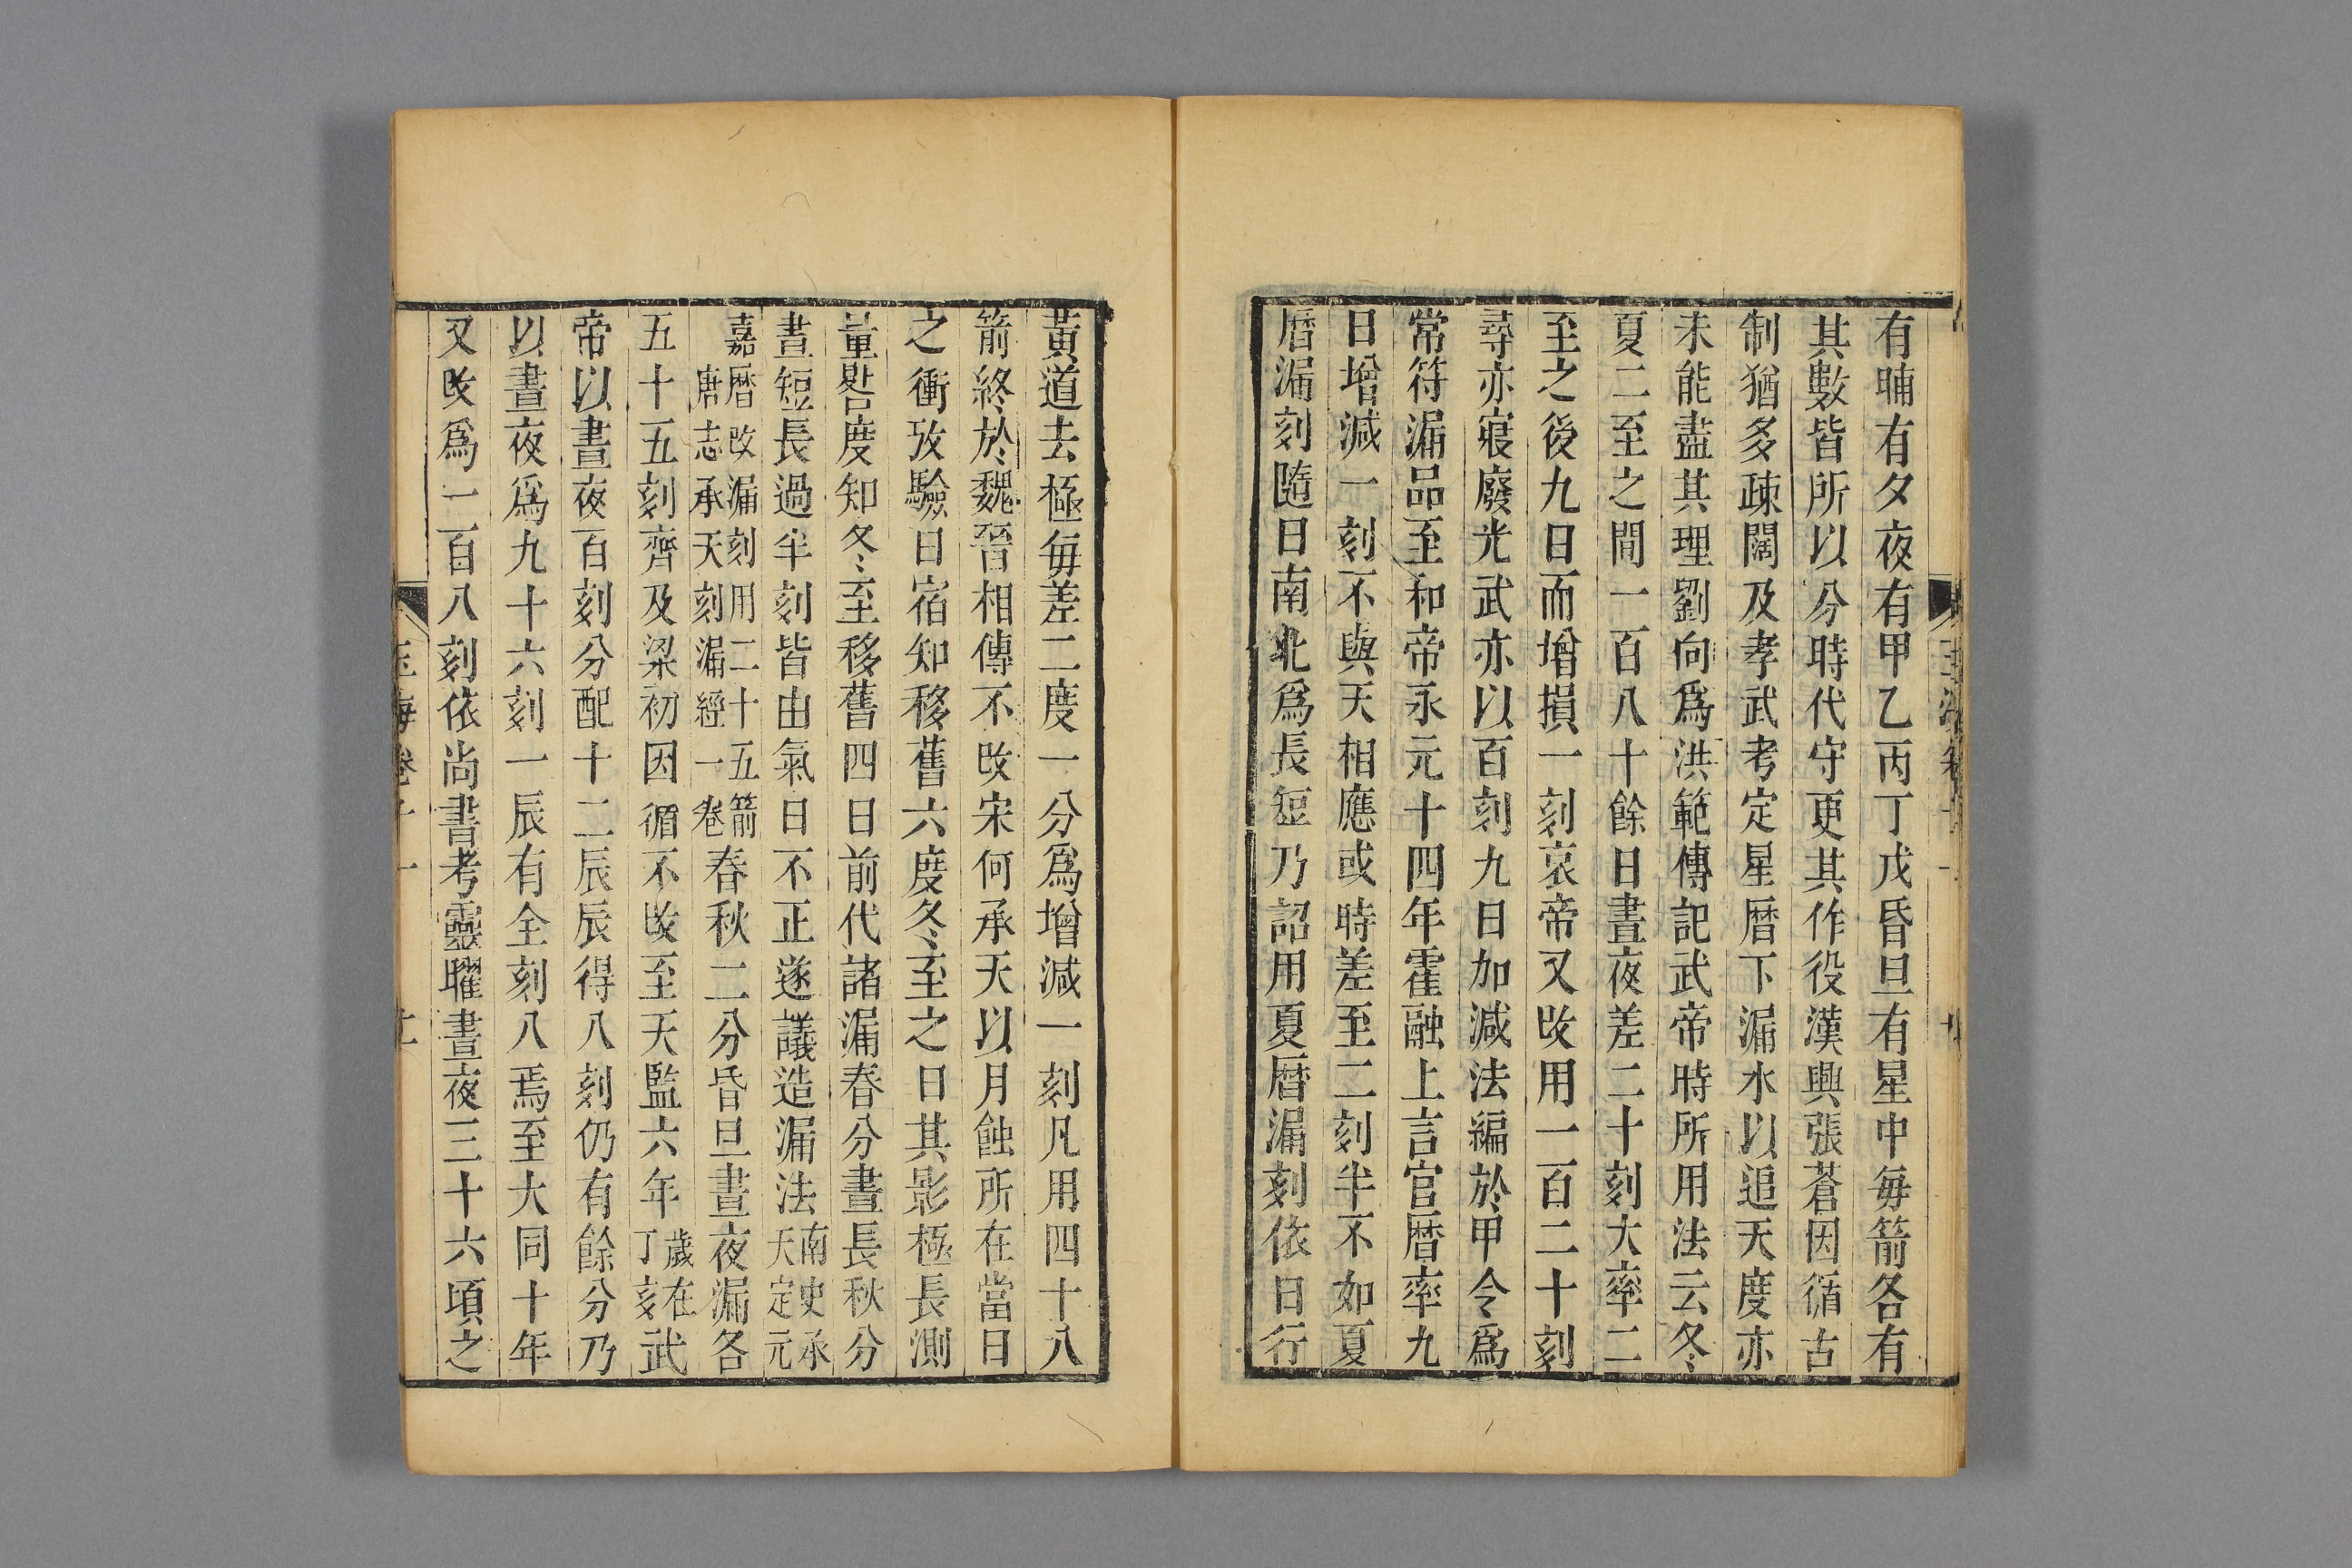 有晡有夕夜有甲乙丙丁戊昏旦有星中毎箭各有
其數皆所以分時代守更其作役漢興張蒼因循古
制猶多疎闊及孝武考定星曆下漏水以追天度亦
未能盡其理劉向爲洪範傳記武帝時所用法云冬
夏二至之間一百八十餘日晝夜差二十刻大率二
至之後九日而增損一刻哀帝又改用一百二十刻
尋亦寢廢光武亦以百刻九日加減法編於甲令爲
常符漏品至和帝永元十四年霍融上言官曆率九
日增減一刻不與天相應或時差至二刻半不如夏
曆漏刻隨日南北爲長短乃詔用夏曆漏刻依日行
黃道去極毎差二度一分爲增減一刻凡用四十八
箭終於魏晉相傳不改宋何承天以月蝕所在當日
之衝攷驗日宿知移舊六度冬至之日其影極長測
量晷度知冬至移舊四日前代諸漏春分晝長秋分
晝短長過半刻皆由氣日不正遂議造漏法南史承天定元
嘉曆改漏刻用二十五箭唐志承天刻漏經一卷春秋二分昏旦晝夜漏各
五十五刻齊及梁初因循不改至天監六年歲在丁亥武
帝以晝夜百刻分配十二辰辰得八刻仍有餘分乃
以晝夜爲九十六刻一辰有全刻八焉至大同十年
又改爲一百八刻依尚書考靈曜晝夜三十六頃之
玉海卷十一